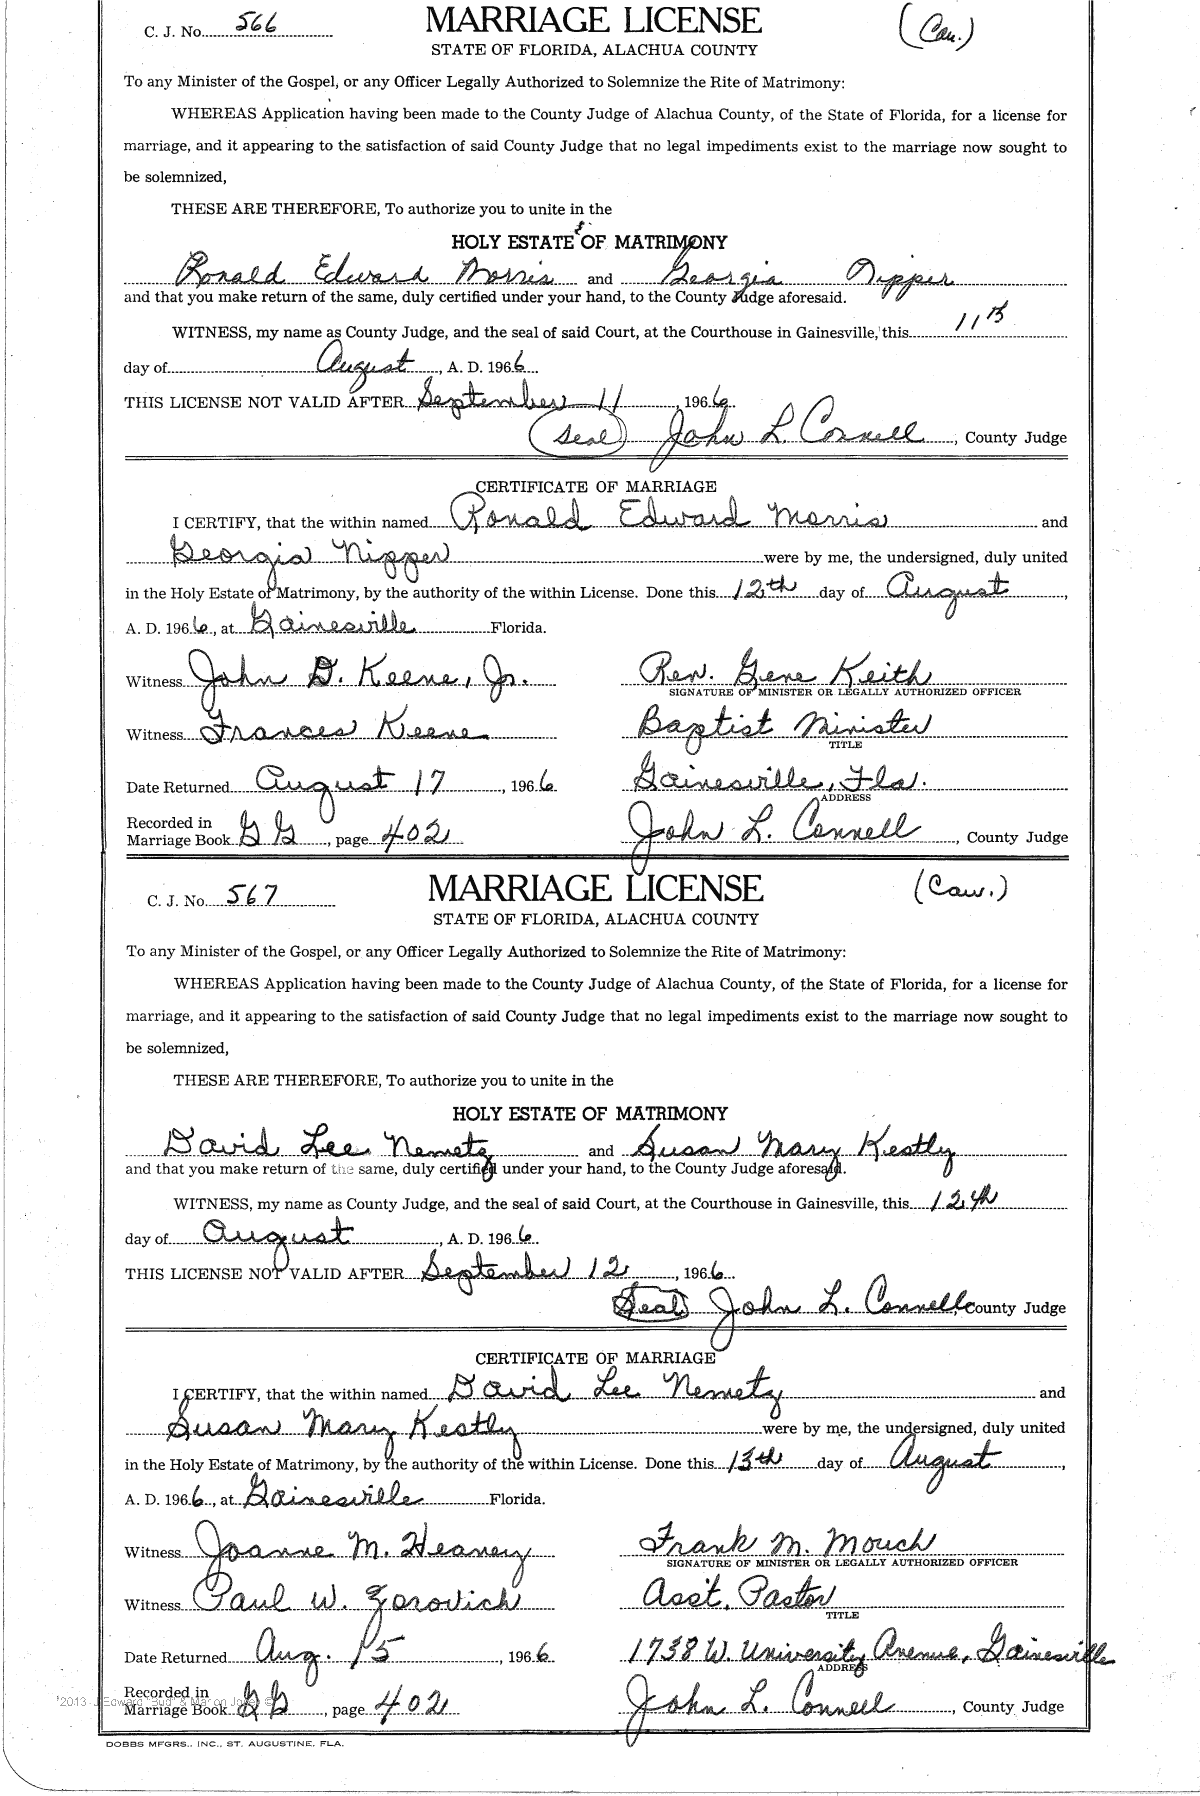 C. J. No. 566 MARRIAGE LICENSE (Cau.)
STATE OF FLORIDA, ALACHUA COUNTY
To any Minister of the Gospel, or any Officer Legally Authorized to Solemnize the Rite of Matrimony:
WHEREAS Application having been made to the County Judge of Alachua County, of the State of Florida, for a license for
marriage, and it appearing to the satisfaction of said County Judge that no legal impediments exist to the marriage now sought to
be solemnized,
THESE ARE THEREFORE, To authorize you to unite in the
HOLY ESTATE OF MATRIMONY
Ronald Edward Morris and Georgia Nipper
and that you make return of the same, duly certified under your hand, to the County Judge aforesaid.
WITNESS, my name as County Judge, and the seal of said Court, at the Courthouse in Gainesville, this 11th
day of August, A. D. 1966
THIS LICENSE NOT VALID AFTER September 11, 1966
(Seal) John L. Connell, County Judge
CERTIFICATE OF MARRIAGE
I CERTIFY, that the within named Ronald Edward Morris and
Georgia Nipper were by me, the undersigned, duly united
in the Holy Estate of Matrimony, by the authority of the within License. Done this 12th day of August,
A. D. 1966, at Gainesville Florida.
Witness John D. Keene, Jr. Rev. Gene Keith
SIGNATURE OF MINISTER OR LEGALLY AUTHORIZED OFFICER
Witness Frances Keene Baptist Minister
TITLE
Date Returned August 17, 1966 Gainesville, Fla.
ADDRESS
Recorded in
Marriage Book GG, page 402 John L. Connell, County Judge
C. J. No. 567 MARRIAGE LICENSE (Cau.)
STATE OF FLORIDA, ALACHUA COUNTY
To any Minister of the Gospel, or any Officer Legally Authorized to Solemnize the Rite of Matrimony:
WHEREAS Application having been made to the County Judge of Alachua County, of the State of Florida, for a license for
marriage, and it appearing to the satisfaction of said County Judge that no legal impediments exist to the marriage now sought to
be solemnized,
THESE ARE THEREFORE, To authorize you to unite in the
HOLY ESTATE OF MATRIMONY
David Lee Nemetz and Susan Mary Kestly
and that you make return of the same, duly certified under your hand, to the County Judge aforesaid.
WITNESS, my name as County Judge, and the seal of said Court, at the Courthouse in Gainesville, this 12th
day of August, A. D. 1966
THIS LICENSE NOT VALID AFTER September 12, 1966
(Seal) John L. Connell County Judge
CERTIFICATE OF MARRIAGE
I CERTIFY, that the within named David Lee Nemetz and
Susan Mary Kestly were by me, the undersigned, duly united
in the Holy Estate of Matrimony, by the authority of the within License. Done this 13th day of August,
A. D. 1966, at Gainesville Florida.
Witness Joanne M. Heaney Frank M. Mouch
SIGNATURE OF MINISTER OR LEGALLY AUTHORIZED OFFICER
Witness Paul W. Zorovich Ass't. Pastor
TITLE
Date Returned Aug. 15, 1966 1738 W. University Avenue, Gainesville
ADDRESS
Recorded in
Marriage Book GG, page 402 John L. Connell, County Judge
DOBBS MFGRS., INC., ST. AUGUSTINE, FLA.